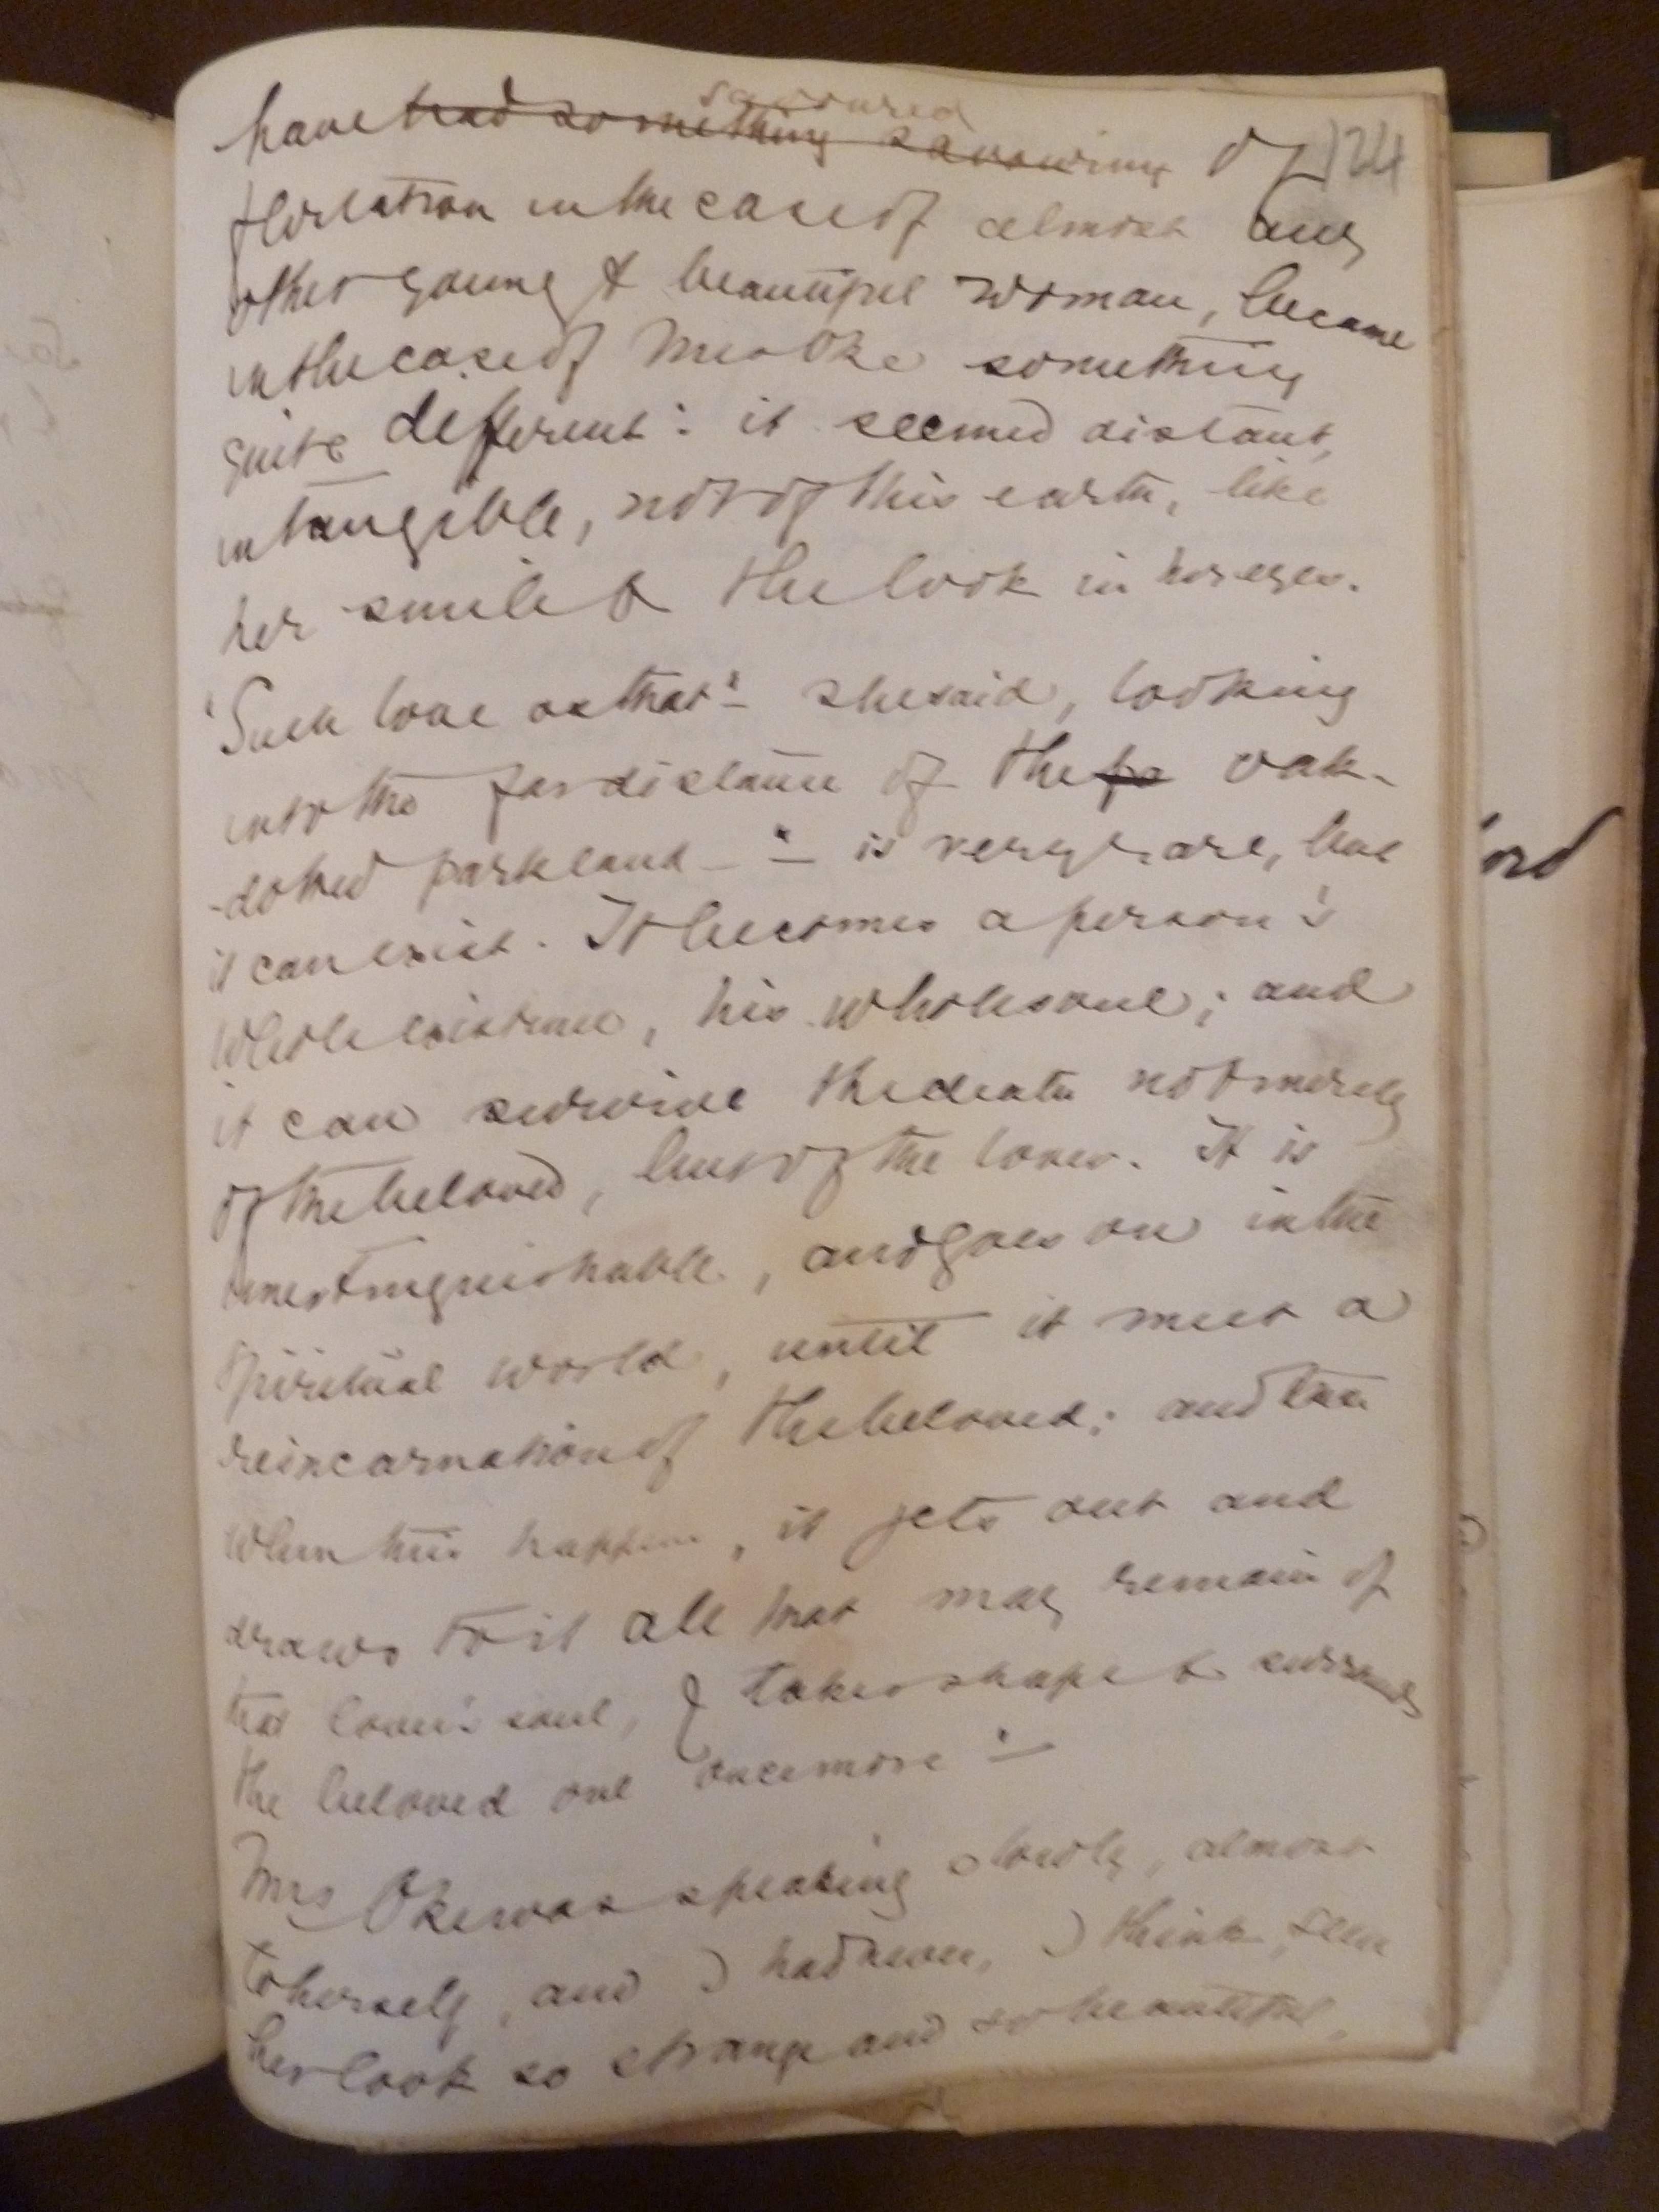 savoured
have had something savouring of 124
flirtation in the case of almost any
other young & beautiful woman, became
in the case of Mrs Oke something
quite different: it seemed distant,
intangible, not of this earth, like
her smile & the look in her eyes.
"Such love as that" – she said, looking
into the far distance of the fa oak-
-dotted parkland – " – is very rare, but
it can exist. It becomes a person's
whole existence, his whole soul; and
it can survive the death not merely
of the beloved, but of the lover. It is
unextinguishable, and goes on in the
spiritual world, until it meet a
reincarnation of the beloved; and then
when this happens, it jets out and
draws to it all that may remain of
that lover's soul, & takes shape & surrounds
the beloved one once more" –
Mrs Oke was speaking slowly, almost
to herself, and I had never, I think, seen
her look so strange and so beautiful,
ord